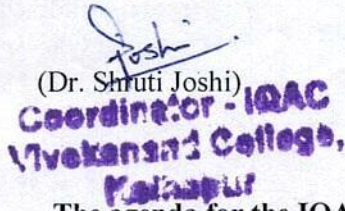 Joshi
(Dr. Shruti Joshi)
Coordinator - IQAC
Vivekanand College,
Kolhapur
The agenda for the IQA